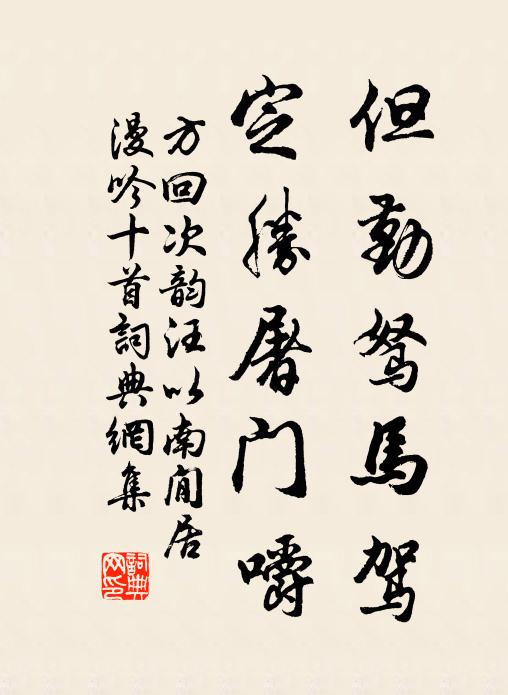 但勤驽馬驾
定勝屠门嚼
方回次韵汪以南闲居
漫吟十首詞典網集
詞典网印